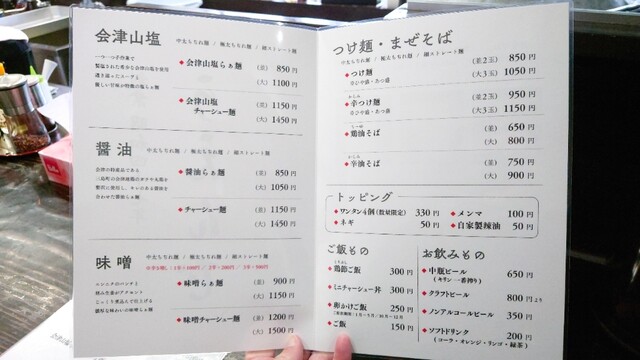 会津山塩
中太ちぢれ麺 / 極太ちぢれ麺 / 細ストレート麺
◆会津山塩らぁ麺 (並) 850 円
(大) 1100 円
◆会津山塩
チャーシュー麺 (並) 1150 円
(大) 1450 円
醤油
中太ちぢれ麺 / 極太ちぢれ麺 / 細ストレート麺
◆醤油らぁ麺 (並) 850 円
(大) 1050 円
◆チャーシュー麺 (並) 1150 円
(大) 1450 円
味噌
中太ちぢれ麺 / 極太ちぢれ麺 / 細ストレート麺
◆味噌らぁ麺 (並) 900 円
(大) 1150 円
◆味噌チャーシュー麺 (並) 1200 円
(大) 1500 円
つけ麺・まぜそば
中太ちぢれ麺 / 極太ちぢれ麺 / 細ストレート麺
◆つけ麺 (並2玉) 850 円
ひや盛・あつ盛 (大3玉) 1050 円
◆辛つけ麺 (並2玉) 950 円
ひや盛・あつ盛 (大3玉) 1150 円
◆鶏油そば (並) 650 円
(大) 800 円
◆辛油そば (並) 750 円
(大) 900 円
トッピング
◆ワンタン4個(数量限定) 330 円
◆ネギ 50 円
◆メンマ 100 円
◆自家製辣油 50 円
ご飯もの
◆鶏節ご飯 300 円
◆ミニチャーシュー丼 300 円
250 円
◆ご飯 150 円
お飲みもの
◆中瓶ビール 650 円
(キリン 一番搾り)
◆クラフトビール 800 円より
◆ノンアルコールビール 350 円
◆ソフトドリンク 200 円
(コーラ・オレンジ・リンゴ・緑茶)